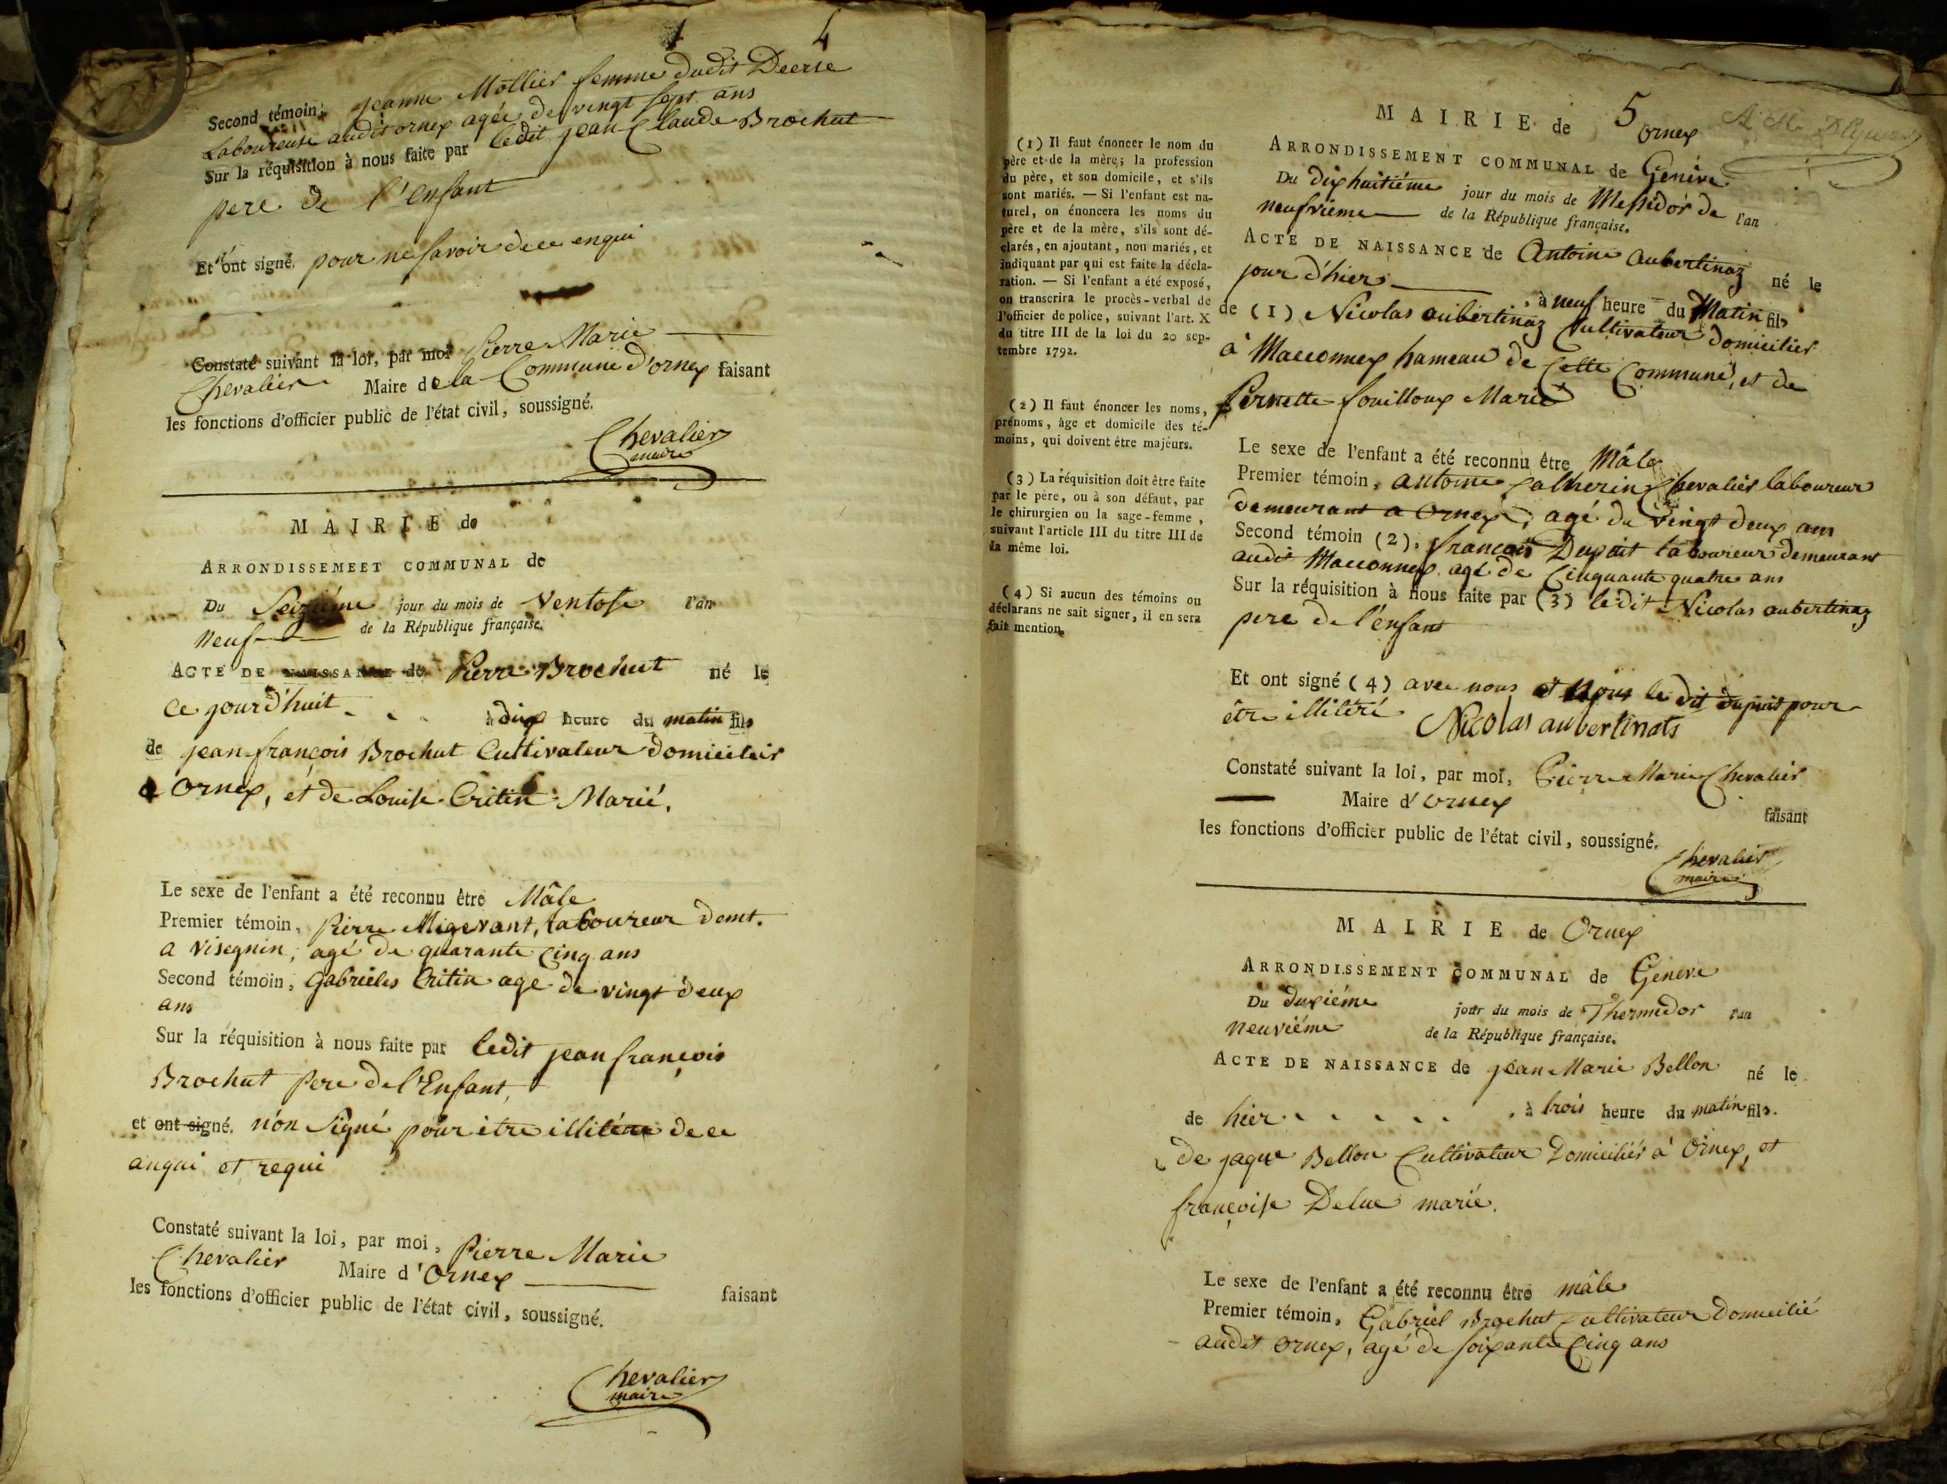 4
Second témoin, jeanne Mottier femme dudit Decrie
Laboureuse audit ornex agée de vingt sept ans
Sur la réquisition à nous faite par ledit jean Claude Brochut
pere de l'enfant
Et ont signé. pour ne savoir de ce enqui
Constaté suivant la loi, par moi Pierre Marie
Chevalier Maire de la Commune d'ornex faisant
les fonctions d'officier public de l'état civil, soussigné.
Chevalier
maire
MAIRIE de
ARRONDISSEMEET COMMUNAL de
Du Seizième jour du mois de Ventose l'an
neuf de la République française.
ACTE DE NAISSANCE de Pierre Brochut né le
ce jourd'huit à dix heure du matin fils
de jean françois Brochut Cultivateur domicilier
a Ornex, et de Louise Critin Marié.
Le sexe de l'enfant a été reconnu être Mâle
Premier témoin, Pierre Migevant, laboureur demt.
a Visegnin, agé de quarante Cinq ans
Second témoin, Gabrieles Critin age de vingt deux
ans
Sur la réquisition à nous faite par ledit jean françois
Brochut Pere de l'Enfant,
et ont signé. non Signé pour être illitére de ce
anqui et requi
Constaté suivant la loi, par moi, Pierre Marie
Chevalier Maire d'Ornex
faisant
les fonctions d'officier public de l'état civil, soussigné.
Chevalier
maire
(1) Il faut énoncer le nom du
père et de la mère; la profession
du père, et son domicile, et s'ils
sont mariés. — Si l'enfant est na-
turel, on énoncera les noms du
père et de la mère, s'ils sont dé-
clarés, en ajoutant, non mariés, et
indiquant par qui est faite la décla-
ration. — Si l'enfant a été exposé,
on transcrira le procès-verbal de
l'officier de police, suivant l'art. X
du titre III de la loi du 20 sep-
tembre 1792.
(2) Il faut énoncer les noms,
prénoms, âge et domicile des té-
moins, qui doivent être majeurs.
(3) La réquisition doit être faite
par le père, ou à son défaut, par
le chirurgien ou la sage-femme,
suivant l'article III du titre III de
la même loi.
(4) Si aucun des témoins ou
déclarans ne sait signer, il en sera
fait mention.
5
MAIRIE de Ornex
ARRONDISSEMENT COMMUNAL de Genève
Du dixhuitiéme jour du mois de Messidor de l'an
neufvième de la République française.
ACTE DE NAISSANCE de Antoine aubertinaz né le
jour d'hier à neuf heure du Matin fils
de (1) Nicolas aubertinaz Cultivateur domicilier
à Maconnex hameau de Cette Commune, et de
Pernette fouilloux Marié
Le sexe de l'enfant a été reconnu être Mâle
Premier témoin, antoine Catherin Chevalier laboureur
demeurant a Ornex, agé de Vingt deux ans
Second témoin (2), françois Dupuit laboureur demeurant
audit Maconnex agé de Cinquante quatre ans
Sur la réquisition à nous faite par (3) ledit Nicolas aubertinaz
pere de l'enfant
Et ont signé (4) avec nous et non le dit dupuit pour
être illitéré
Nicolas aubertinats
Constaté suivant la loi, par moi, Pierre Marie Chevalier
Maire d'ornex faisant
les fonctions d'officier public de l'état civil, soussigné.
Chevalier
maire
MAIRIE de Ornex
ARRONDISSEMENT COMMUNAL de Geneve
Du duxiéme jour du mois de Thermidor l'an
neuviéme de la République française.
ACTE DE NAISSANCE de jean Marie Bellon né le
de hier à trois heure du matin fils.
de jaque Bellon Cultivateur Domiciliés à Ornex, et
françoise Deluc marié.
Le sexe de l'enfant a été reconnu être mâle
Premier témoin, Gabriel Brochut cultivateur Domicilié
audit ornex, agé de soixante Cinq ans